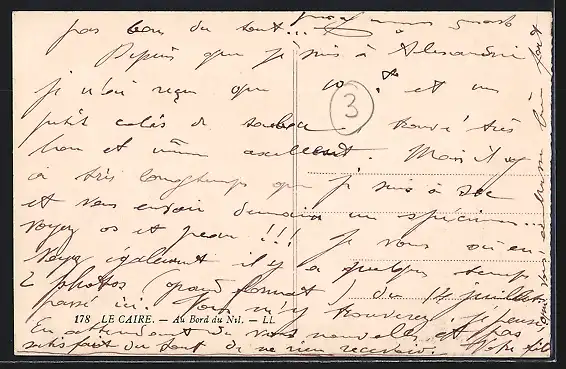 pas bon du tout...
Depuis que je suis à Alexandrie
je n'ai reçu que 10 et un
petit colis de tabac, trouvé très
bon et même excellent. Mais il y
a très longtemps que je suis à sec
et vous envoie demain un spécimen...
voyez os et peau !!! Je vous ai en-
voyé également il y a quelque temps
2 photos (grand format) du 14 juillet
passé ici. Vous m'y trouverez, je pense,
178 LE CAIRE. — Au Bord du Nil. — LL.
En attendant de vos nouvelles et pas
satisfait du tout de ne rien recevoir. Votre fils
3